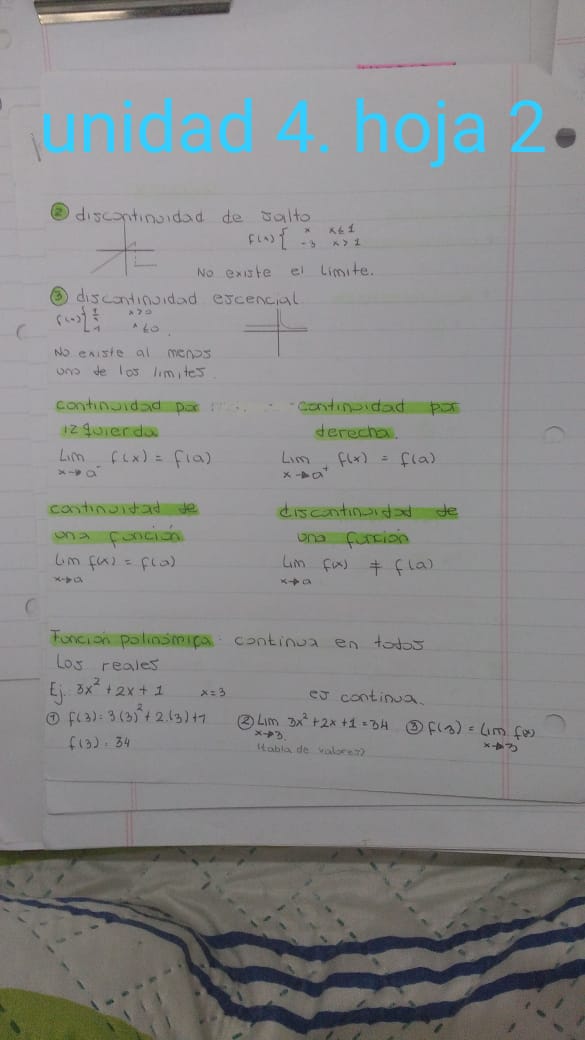 unidad 4. hoja 2
② discontinuidad de salto
f(x) { x x ≤ 1
-3 x > 1
No existe el limite.
③ discontinuidad escencial
f(x) { 1/x x > 0
-1 x ≤ 0.
No existe al menos
uno de los limites.
continuidad por
izquierda
Lim f(x) = f(a)
x→a⁻
continuidad por
derecha.
Lim f(x) = f(a)
x→a⁺
continuidad de
una función
Lim f(x) = f(a)
x→a
discontinuidad de
una función
Lim f(x) ≠ f(a)
x→a
Función polinómica: continua en todos
Los reales
Ej. 3x² + 2x + 1 x = 3 es continua.
① f(3) = 3(3)² + 2.(3) + 1
f(3) = 34
② Lim 3x² + 2x + 1 = 34
x→3
(tabla de valores)
③ f(3) = Lim f(x)
x→3